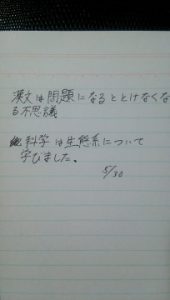 漢文は問題になるととけなくな
る不思議
科学は生態系について
学びました。
5/30